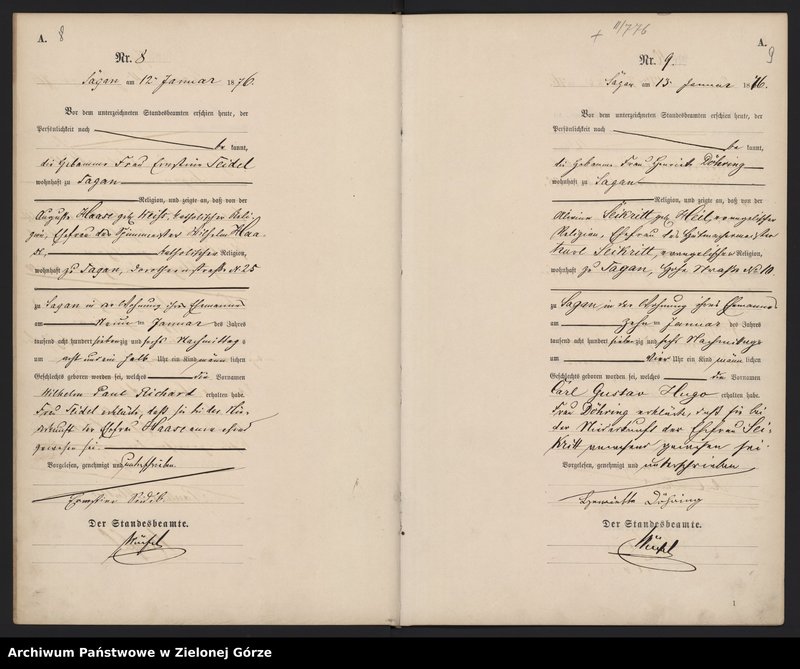 A. 8
Nr. 8
Sagan am 12 Januar 1876.
Vor dem unterzeichneten Standesbeamten erschien heute, der
Persönlichkeit nach
be kannt,
die Hebamme Frau Ernstine Seidel
wohnhaft zu Sagan
Religion, und zeigte an, daß von der
Auguste Haase geb. katholischer Reli-
gion, Ehefrau des Wilhelm Haa-
se, katholischer Religion,
wohnhaft zu Sagan, Dorotheenstraße N. 25
zu Sagan in der Wohnung ihres Ehemannes
am Neunten Januar des Jahres
tausend acht hundert siebenzig und sechs Nachmittags
um acht und ein halb Uhr ein Kind männlichen
Geschlechts geboren worden sei, welches die Vornamen
Wilhelm Paul Richard erhalten habe.
Frau Seidel erklärte, daß sie bei der Nie-
derkunft der Ehefrau Haase anwesend
gewesen sei.
Vorgelesen, genehmigt und unterschrieben
Ernstine
Der Standesbeamte.
+ II/776
A. 9
Nr. 9.
Sagan am 13 Januar 1876.
Vor dem unterzeichneten Standesbeamten erschien heute, der
Persönlichkeit nach
be kannt,
die Hebamme Frau Henriette Döhring
wohnhaft zu Sagan
Religion, und zeigte an, daß von der
Seikritt geb. Heil, evangelischer
Religion, Ehefrau des Hutmachermeister
Karl Seikritt, evangelischer Religion,
wohnhaft zu Sagan, Hohe Straße No 10
zu Sagan in der Wohnung ihres Ehemannes
am Zehnten Januar des Jahres
tausend acht hundert siebenzig und sechs Nachmittags
um vier Uhr ein Kind männlichen
Geschlechts geboren worden sei, welches die Vornamen
Carl Gustav Hugo erhalten habe.
Frau Döhring erklärte, daß sie bei
der Niederkunft der Ehefrau Sei-
kritt anwesend gewesen sei.
Vorgelesen, genehmigt und unterschrieben
Henriette Döhring
Der Standesbeamte.
1
Archiwum Państwowe w Zielonej Górze